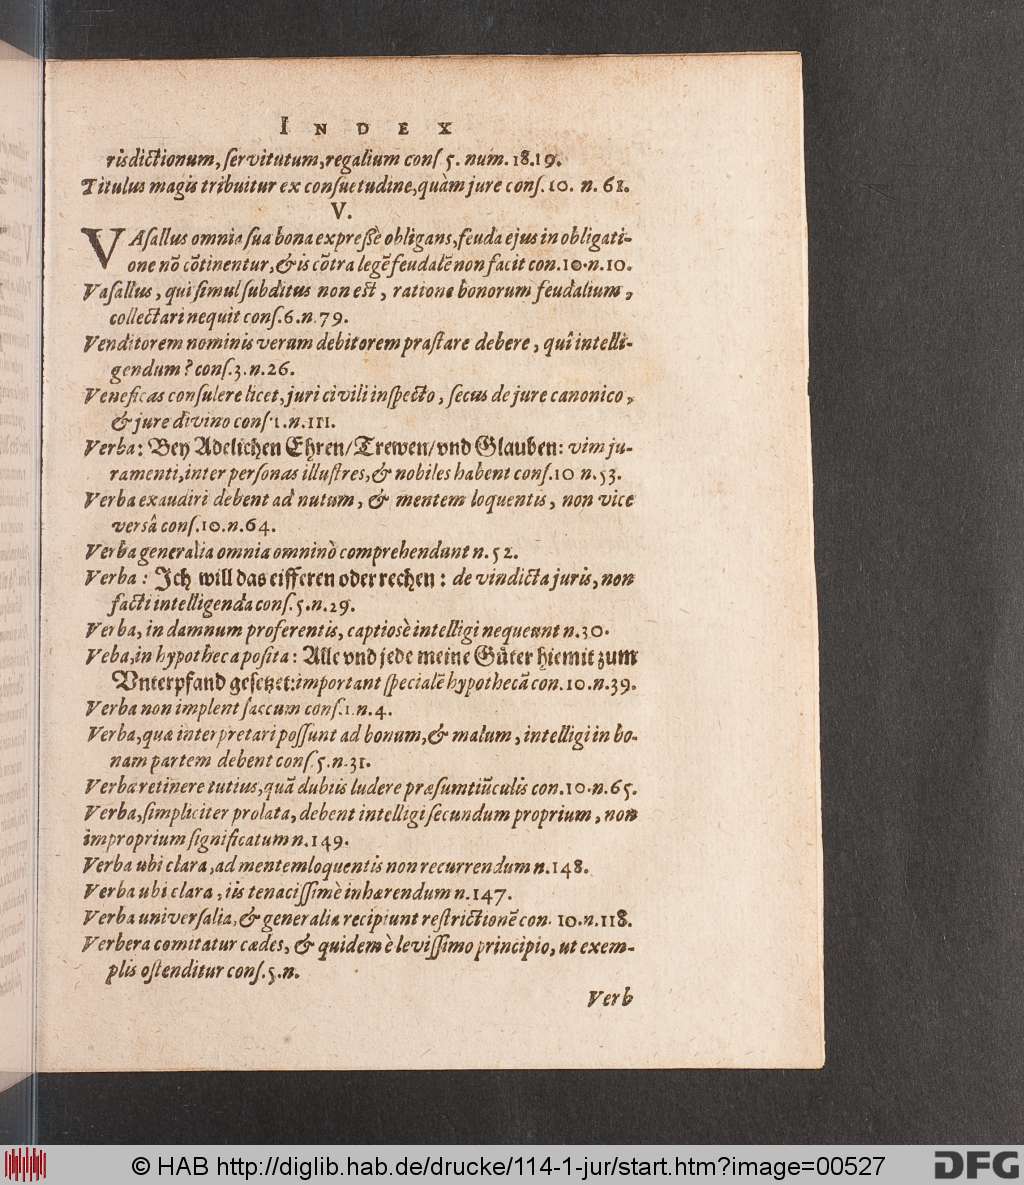 INDEX
risdictionum, servitutum, regalium cons 5. num. 18.19.
Titulus magis tribuitur ex consuetudine, quàm jure cons. 10. n. 61.
V.
VAsallus omnia sua bona expressè obligans, feuda ejus in obligati-
one nō cōtinentur, & is cōtra legē feudalē non facit con. 10. n. 10.
Vasallus, qui simul subditus non est, ratione bonorum feudalium,
collectari nequit cons. 6. n. 79.
Venditorem nominis verum debitorem præstare debere, quî intelli-
gendum? cons. 3. n. 26.
Veneficas consulere licet, juri civili inspecto, secus de jure canonico,
& jure divino cons 1. n. 111.
Verba: Bey Adelichen Ehren/ Trewen/ vnd Glauben: vim ju-
ramenti, inter personas illustres, & nobiles habent cons. 10 n. 53.
Verba exaudiri debent ad nutum, & mentem loquentis, non vice
versâ cons. 10. n. 64.
Verba generalia omnia omninò comprehendunt n. 52.
Verba: Ich will das eifferen oder rechen: de vindicta juris, non
facti intelligenda cons. 5. n. 29.
Verba, in damnum proferentis, captiosè intelligi nequeunt n. 30.
Veba, in hypotheca posita: Alle vnd jede meine Güter hiemit zum
Vnterpfand gesetzet: important specialē hypothecā con. 10. n. 39.
Verba non implent saccum cons. 1. n. 4.
Verba, quæ interpretari possunt ad bonum, & malum, intelligi in bo-
nam partem debent cons. 5. n. 31.
Verba retinere tutius, quā dubiis ludere præsumtiūculis con. 10. n. 65.
Verba, simpliciter prolata, debent intelligi secundum proprium, non
improprium significatum n. 149.
Verba ubi clara, ad mentem loquentis non recurrendum n. 148.
Verba ubi clara, iis tenacissimè inhærendum n. 147.
Verba universalia, & generalia recipiunt restrictionē con. 10. n. 118.
Verbera comitatur cædes, & quidem è levissimo principio, ut exem-
plis ostenditur cons. 5. n.
Verb
© HAB http://diglib.hab.de/drucke/114-1-jur/start.htm?image=00527
DFG